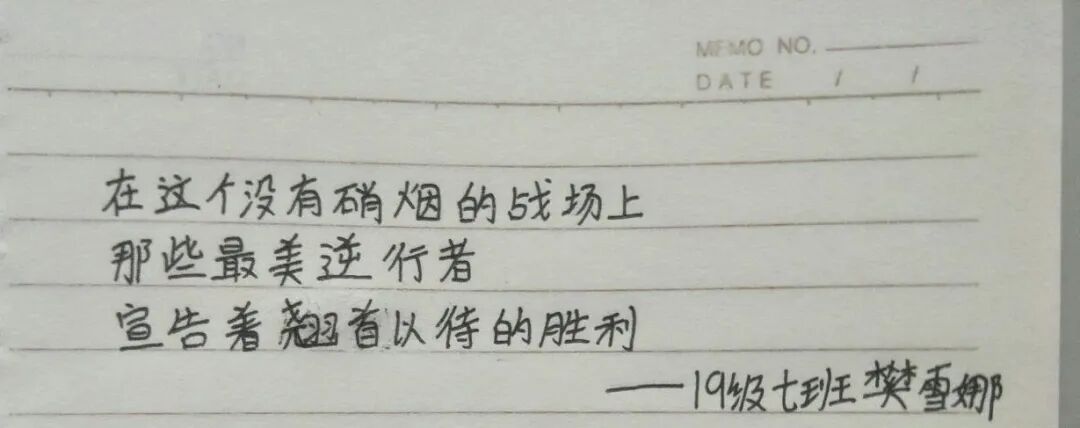 MEMO NO.
DATE / /
在这个没有硝烟的战场上
那些最美逆行者
宣告着翘首以待的胜利
——19级七班樊雪娜